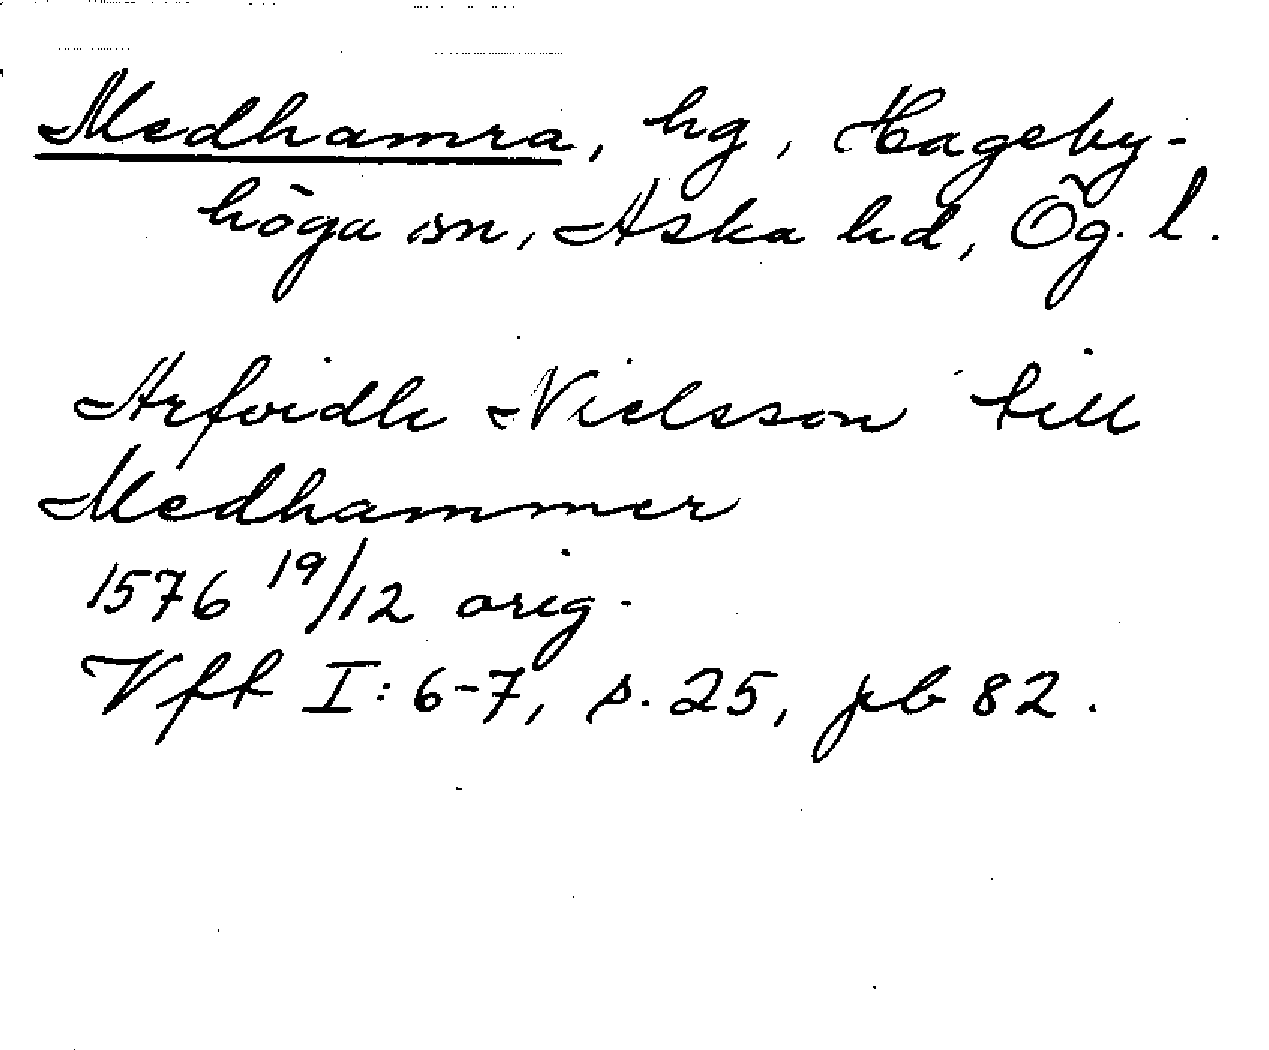 Medhamra, hg, Hageby-
höga sn, Aska hd, Ög. l.
Arfvidh Nielsson till
Medhammer
1576 19/12 orig.
Vff I: 6-7, s. 25, pb 82.